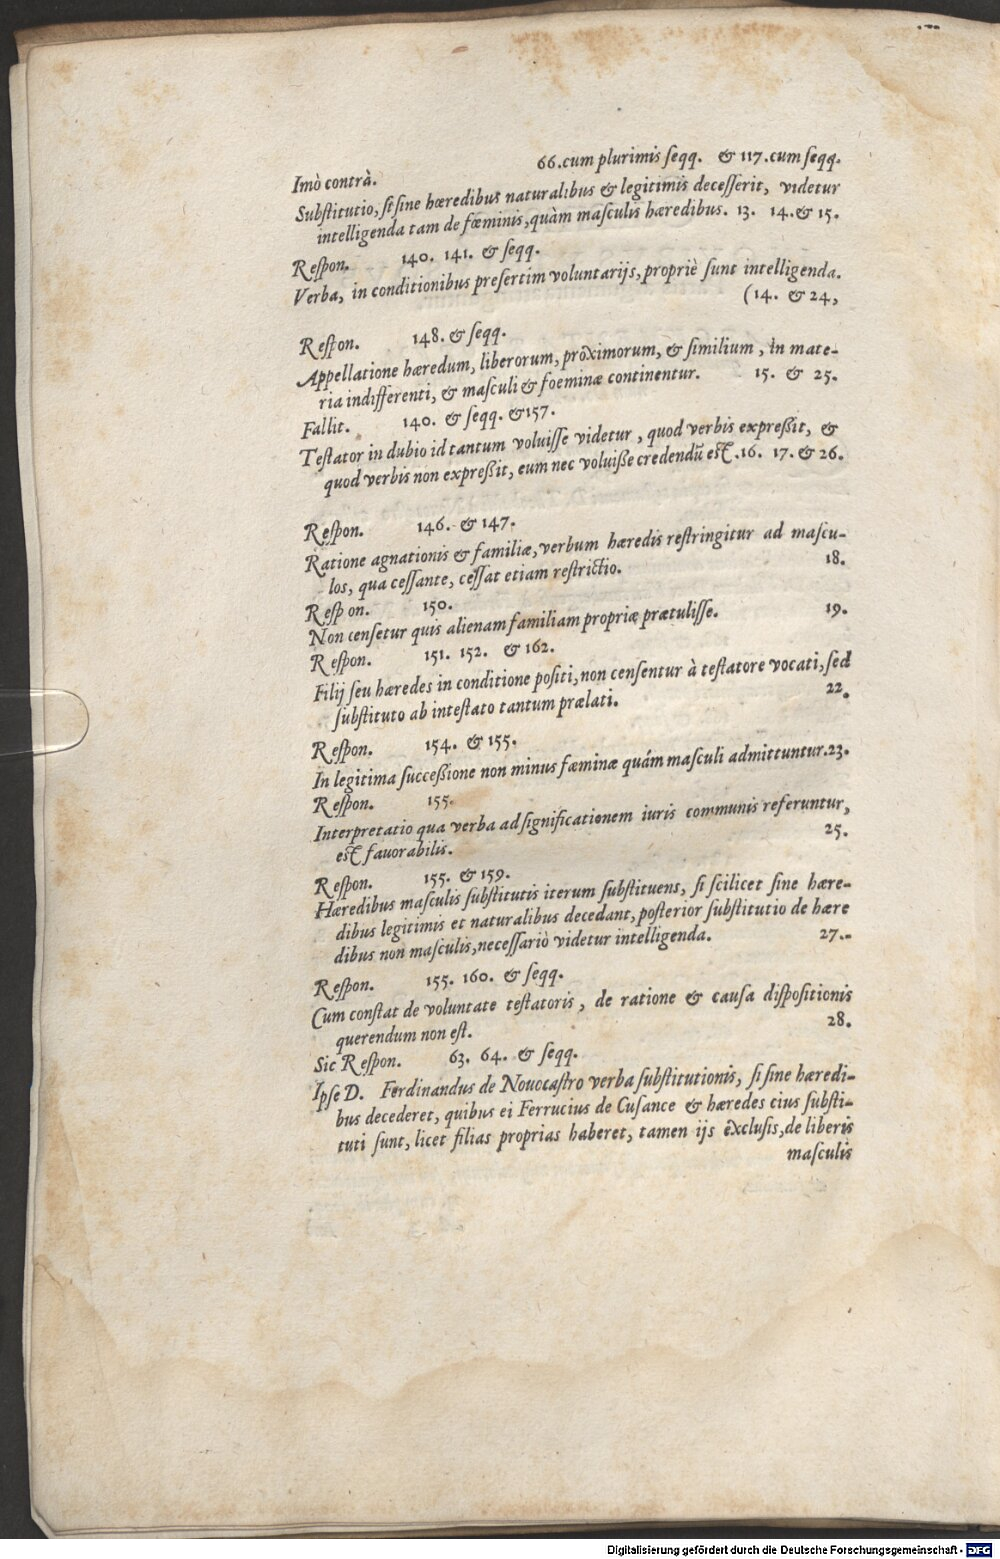 Imò contrà. 66. cum plurimis ſeqq. & 117. cum ſeqq.
Subſtitutio, ſi ſine hæredibus naturalibus & legitimis deceſſerit, videtur
intelligenda tam de fœminis, quàm maſculis hæredibus. 13. 14. & 15.
Reſpon. 140. 141. & ſeqq.
Verba, in conditionibus preſertim voluntarijs, propriè ſunt intelligenda.
(14. & 24,
Reſpon. 148. & ſeqq.
Appellatione hæredum, liberorum, proximorum, & ſimilium, in mate-
ria indifferenti, & maſculi & foeminæ continentur. 15. & 25.
Fallit. 140. & ſeqq. & 157.
Teſtator in dubio id tantum voluiſſe videtur, quod verbis expreßit, &
quod verbis non expreßit, eum nec voluiße credendũ eſt. 16. 17. & 26.
Reſpon. 146. & 147.
Ratione agnationis & familiæ, verbum hæredis reſtringitur ad maſcu-
los, qua ceſſante, ceſſat etiam reſtrictio. 18.
Reſpon. 150.
Non cenſetur quis alienam familiam propriæ prætuliſſe. 19.
Reſpon. 151. 152. & 162.
Filij ſeu hæredes in conditione poſiti, non cenſentur à teſtatore vocati, ſed
ſubſtituto ab inteſtato tantum prælati. 22.
Reſpon. 154. & 155.
In legitima ſucceßione non minus fæminæ quám maſculi admittuntur. 23.
Reſpon. 155.
Interpretatio qua verba ad ſignificationem iuris communis referuntur,
eſt fauorabilis. 25.
Reſpon. 155. & 159.
Hæredibus maſculis ſubſtitutis iterum ſubſtituens, ſi ſcilicet ſine hære-
dibus legitimis et naturalibus decedant, poſterior ſubſtitutio de hære
dibus non maſculis, neceſſariò videtur intelligenda. 27.
Reſpon. 155. 160. & ſeqq.
Cum conſtat de voluntate teſtatoris, de ratione & cauſa diſpoſitionis
querendum non eſt. 28.
Sic Reſpon. 63. 64. & ſeqq.
Ipſe D. Ferdinandus de Nouocaſtro verba ſubſtitutionis, ſi ſine hæredi-
bus decederet, quibus ei Ferrucius de Cuſance & hæredes eius ſubſti-
tuti ſunt, licet filias proprias haberet, tamen ijs excluſis, de liberis
maſculis
Digitalisierung gefördert durch die Deutsche Forschungsgemeinschaft - DFG